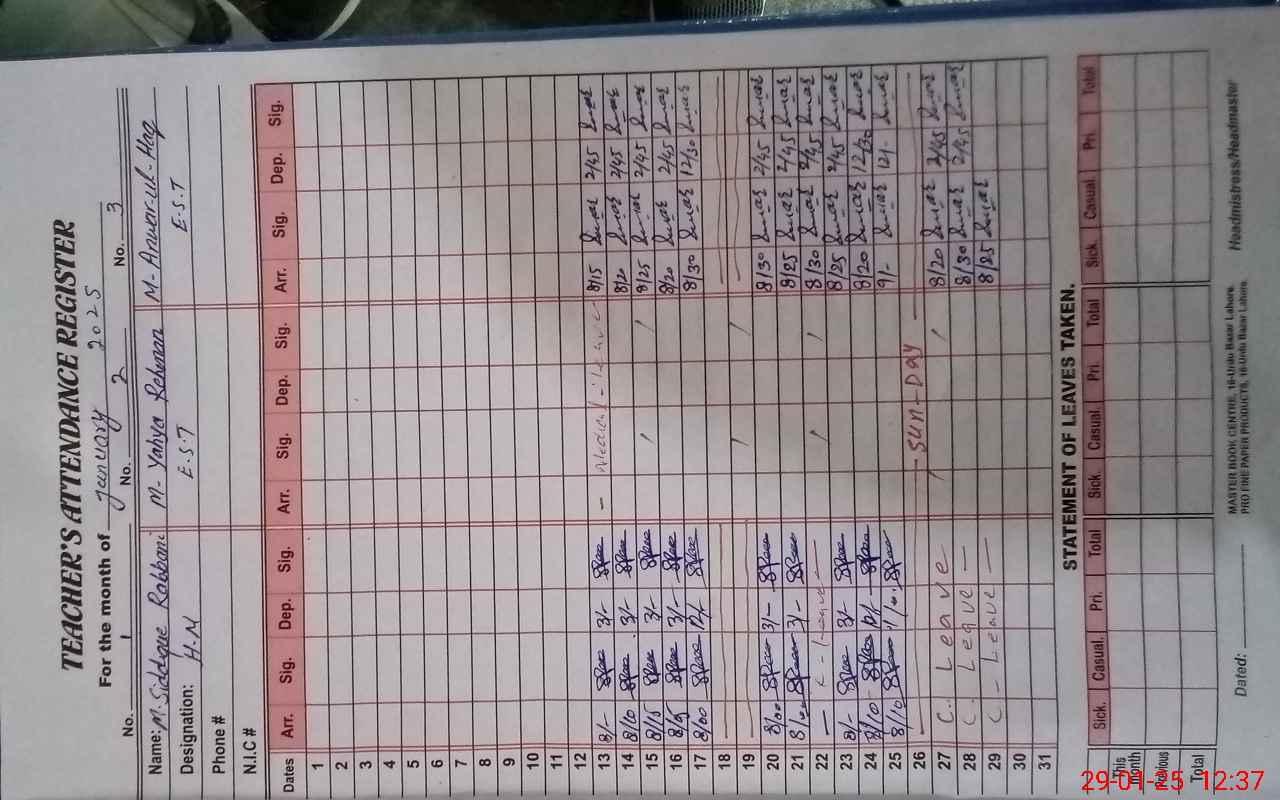 TEACHER'S ATTENDANCE REGISTER
For the month of January 2025
No. 1 No. 2 No. 3
Name: M. Siddque Rabbani M- Yahya Rehman M- Anwar-ul-Haq
Designation: H.M E.S.T E.S.T
Phone #
N.I.C #
Dates Arr. Sig. Dep. Sig. Arr. Sig. Dep. Sig. Arr. Sig. Dep. Sig.
1
2
3
4
5
6
7
8
9
10
11
12
13 8/- 3/- - Medical - leave 8/15 2/45
14 8/10 3/- 8/20 2/45
15 8/15 3/- 8/25 2/45
16 8/5 3/- 8/20 2/45
17 8/00 8/30 12/30
18
19
20 8/00 3/- 8/30 2/45
21 8/00 3/- 8/25 2/45
22 - C - Leave - 8/30 2/45
23 8/- 3/- 8/25 2/45
24 8/10 8/20 12/30
25 8/10 11/00 9/- 12/-
26 SUN-DAY
27 C. Leave 8/20 2/45
28 C. Leave - 8/30 2/45
29 C - Leave - 8/25
30
31
STATEMENT OF LEAVES TAKEN.
Sick. Casual. Pri. Total Sick. Casual. Pri. Total Sick. Casual. Pri Total
This Month
Previous
Total
MASTER BOOK CENTRE, 16-Urdu Bazar Lahore.
PRO FINE PAPER PRODUCTS, 16-Urdu Bazar Lahore.
Dated: Headmistress/Headmaster
29-01-25 12:37